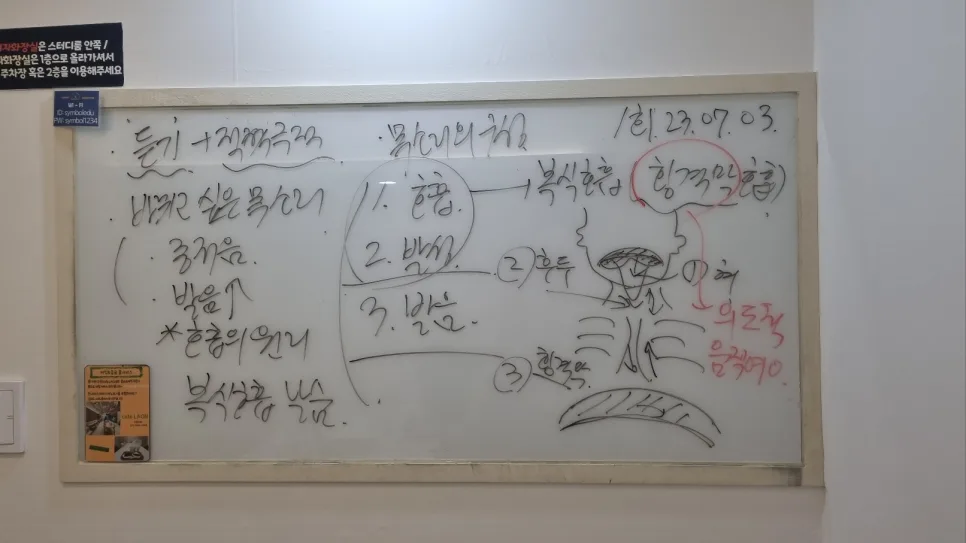 자화장실은 스터디룸 안쪽 /
화장실은 1층으로 올라가셔서
주차장 혹은 2층을 이용해주세요
Wi-Fi
ID symboledu
PW symbol1234
1회. 23. 07. 03.
· 듣기 + 적극
· 바꾸고 싶은 목소리
· 중저음.
· 발음↑
* 호흡의 원리
복식호흡 연습.
· 목소리의 형성
1. 호흡. → 복식호흡 (횡격막 호흡)
2. 발성.
3. 발음.
② 후두
① 혀
③ 횡격막.
의도적
움직여 O.